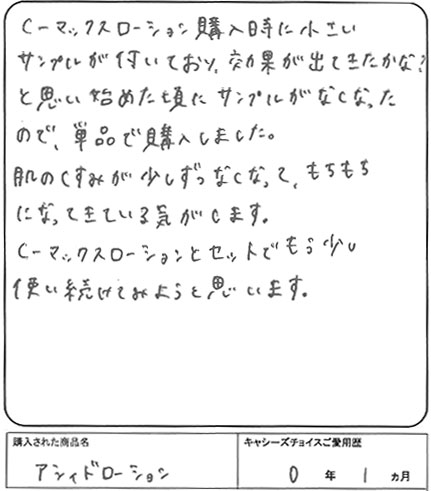 Cーマックスローション購入時に小さい
サンプルが付いており、効果が出てきたかな?
と思い始めた頃にサンプルがなくなった
ので、単品で購入しました。
肌のくすみが少しずつなくなって、もちもち
になってきている気がします。
Cーマックスローションとセットでもう少し
使い続けてみようと思います。
購入された商品名
アシィドローション
キャシーズチョイスご愛用歴
0 年 1 ヵ月